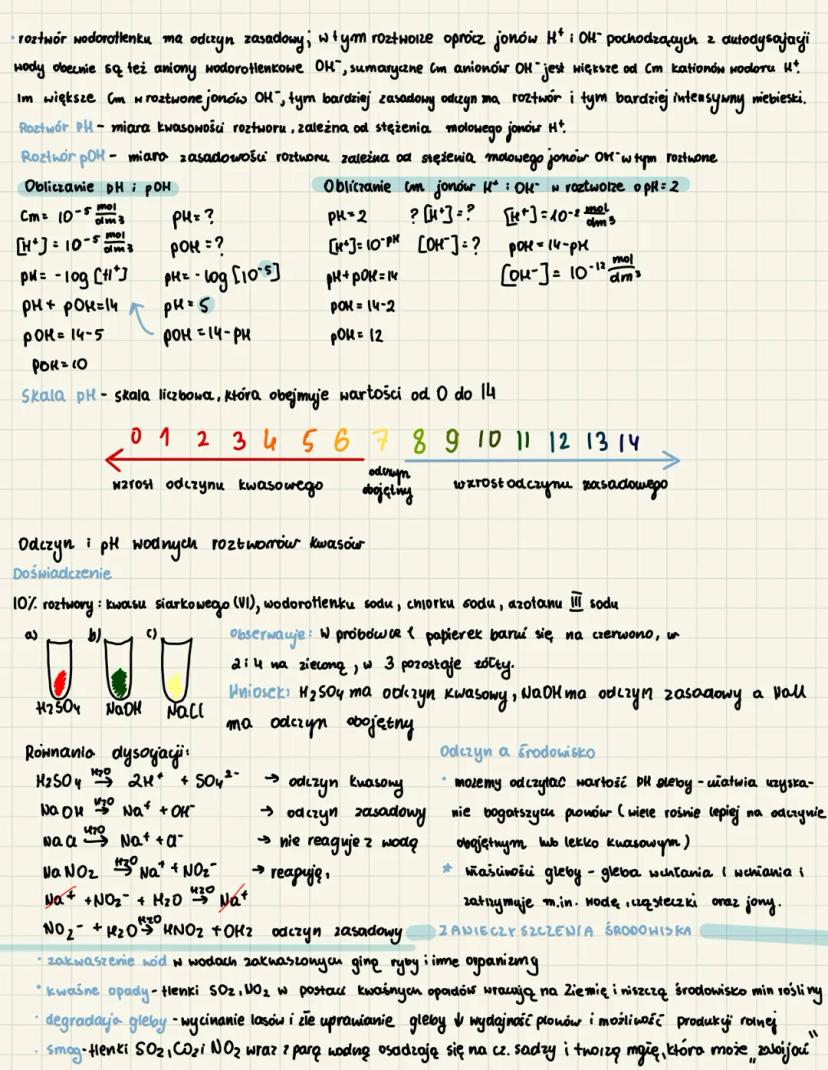 · roztwór wodorotlenku ma odczyn zasadowy; w tym roztworze oprócz jonów H⁺ i OH⁻ pochodzących z autodysocjacji
wody obecnie są też aniony wodorotlenkowe OH⁻, sumaryczne Cm anionów OH⁻ jest większe od Cm kationów wodoru H⁺.
Im większe Cm w roztworze jonów OH⁻, tym bardziej zasadowy odczyn ma roztwór i tym bardziej intensywny niebieski.
Roztwór pH – miara kwasowości roztworu, zależna od stężenia molowego jonów H⁺.
Roztwór pOH – miara zasadowości roztworu zależna od stężenia molowego jonów OH⁻ w tym roztworze
Obliczanie pH i pOH
Cm = 10⁻⁵ mol/dm³ pH = ?
[H⁺] = 10⁻⁵ mol/dm³ pOH = ?
pH = -log [H⁺] pH = -log [10⁻⁵]
pH + pOH = 14 pH = 5
pOH = 14-5 pOH = 14-pH
pOH = 10
Obliczanie Cm jonów H⁺ i OH⁻ w roztworze o pH = 2
pH = 2 ? [H⁺] = ? [H⁺] = 10⁻² mol/dm³
[H⁺] = 10⁻ᵖᴴ [OH⁻] = ? pOH = 14-pH
pH + pOH = 14 [OH⁻] = 10⁻¹² mol/dm³
pOH = 14-2
pOH = 12
Skala pH – skala liczbowa, która obejmuje wartości od 0 do 14
0 1 2 3 4 5 6 7 8 9 10 11 12 13 14
wzrost odczynu kwasowego odczyn obojętny wzrost odczynu zasadowego
Odczyn i pH wodnych roztworów kwasów
Doświadczenie
10% roztwory: kwasu siarkowego (VI), wodorotlenku sodu, chlorku sodu, azotanu III sodu
a) b) c)
H2SO4 NaOH NaCl
Obserwacje: W probówce 1 papierek barwi się na czerwono, w
2 i 4 na zielono, w 3 pozostaje żółty.
Wniosek: H₂SO₄ ma odczyn kwasowy, NaOH ma odczyn zasadowy a NaCl
ma odczyn obojętny
Równania dysocjacji:
H₂SO₄ H₂O→ 2H⁺ + SO₄²⁻ → odczyn kwasowy
NaOH H₂O→ Na⁺ + OH⁻ → odczyn zasadowy
NaCl H₂O→ Na⁺ + Cl⁻ → nie reaguje z wodą
NaNO₂ H₂O→ Na⁺ + NO₂⁻ → reaguje,
Na⁺ + NO₂⁻ + H₂O H₂O→ Na⁺
NO₂⁻ + H₂O H₂O→ HNO₂ + OH₂ odczyn zasadowy
Odczyn a środowisko
· możemy odczytać wartość pH gleby – ułatwia uzyska-
nie bogatszych plonów (wiele rośnie lepiej na odczynie
obojętnym lub lekko kwasowym)
* właściwości gleby – gleba wchłania i wchłania i
zatrzymuje m.in. wodę, cząsteczki oraz jony.
ZANIECZYSZCZENIA ŚRODOWISKA
· zakwaszenie wód w wodach zakwaszonych giną ryby i inne organizmy
· kwaśne opady – tlenki SO₂, NO₂ w postaci kwaśnych opadów wracają na Ziemię i niszczą środowisko min rośliny
· degradacja gleby – wycinanie lasów i złe uprawianie gleby ↓ wydajność plonów i możliwość produkcji rolnej
· smog – tlenki SO₂, CO₂ i NO₂ wraz z parą wodną osadzają się na cz. sadzy i tworzą mgłę, która może „zabijać”